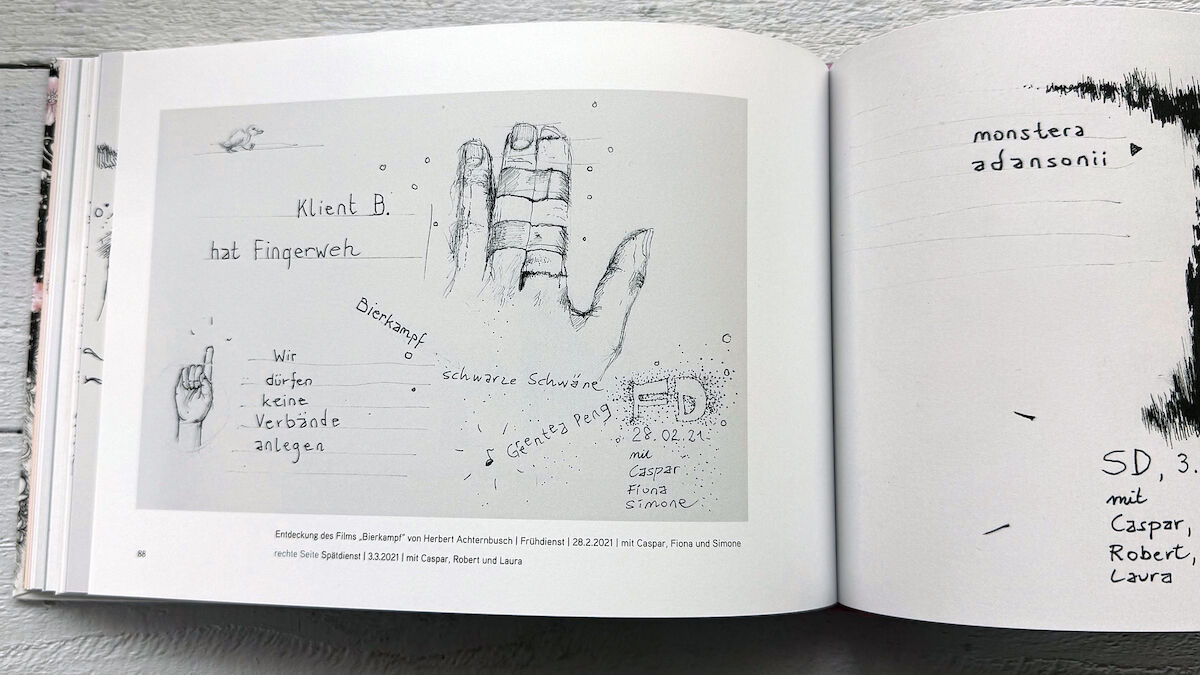 Klient B.
hat Fingerweh
Bierkampf
Wir
dürfen
keine
Verbände
anlegen
schwarze Schwäne
Greentea Peng
FD
28.02.21
mit
Caspar
Fiona
Simone
Entdeckung des Films „Bierkampf" von Herbert Achternbusch | Frühdienst | 28.2.2021 | mit Caspar, Fiona und Simone
88
rechte Seite Spätdienst | 3.3.2021 | mit Caspar, Robert und Laura
monstera
adansonii
SD, 3.
mit
Caspar,
Robert,
Laura